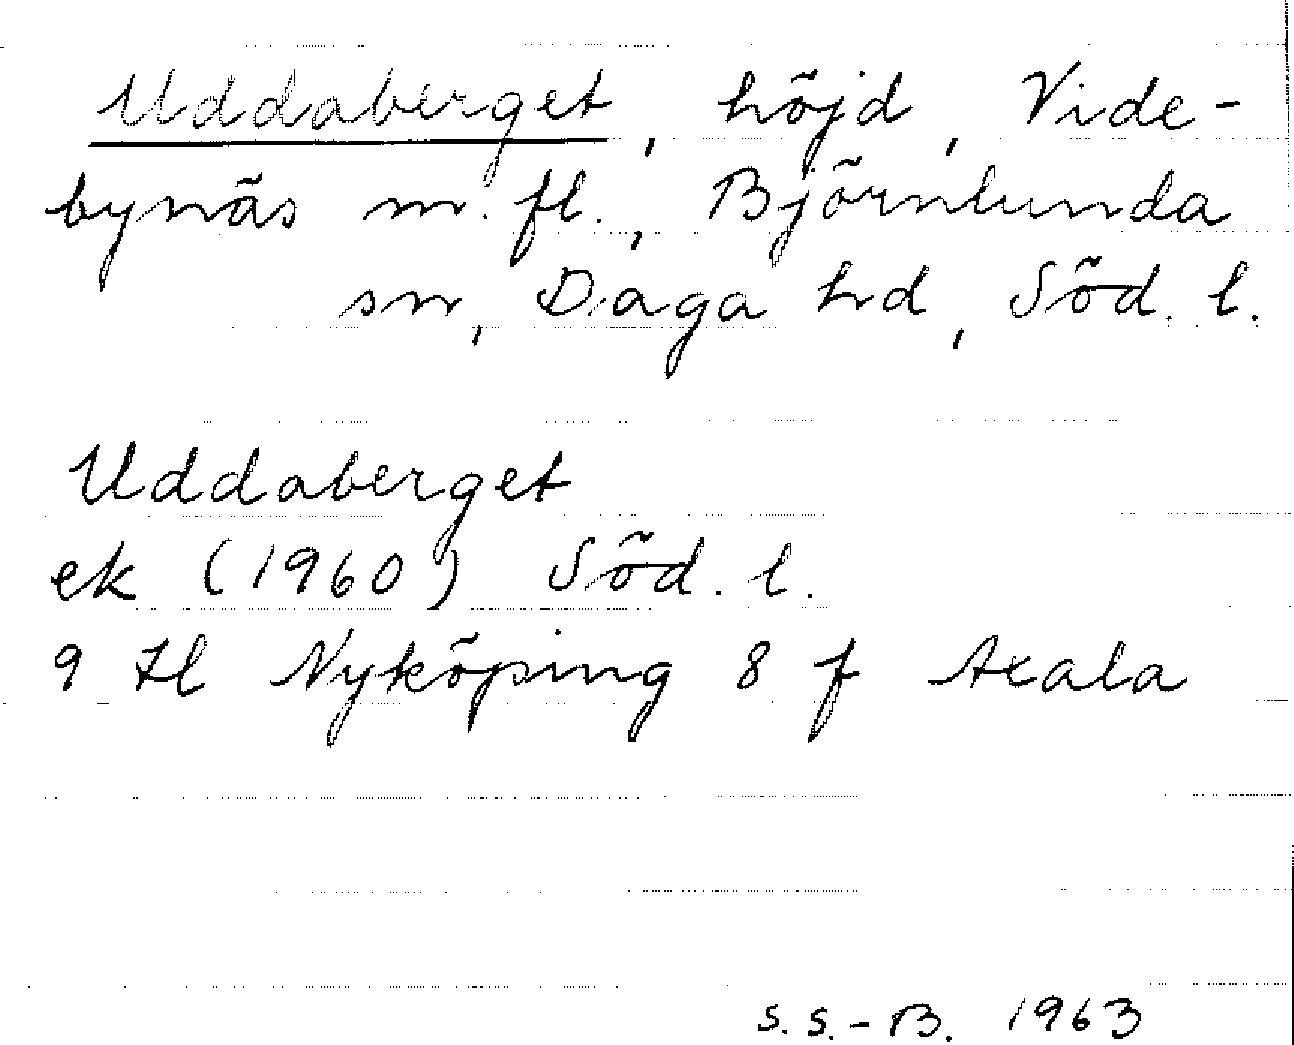 Uddaberget, höjd, Vide-
bynäs m. fl., Björnlunda
sn, Daga hd, Söd. l.
Uddaberget
ek (1960) Söd. l.
9 H l Nyköping 8 f Axala
S. S.-B. 1963